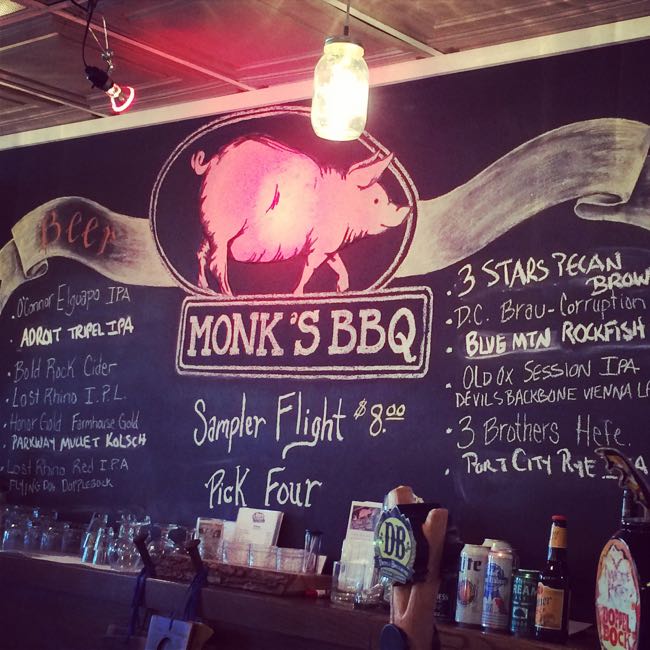 Beer
O'Connor Elguapo IPA
ADROIT TRIPEL IPA
Bold Rock Cider
Lost Rhino I.P.L.
Honor Gold Farmhouse Gold
PARKWAY MULLET KOLSCH
Lost Rhino Red IPA
FLYING DOG DOPPLEBOCK
MONK'S BBQ
Sampler Flight $8.00
Pick Four
3 STARS PECAN
BROWN
D.C. Brau-Corruption
BLUE MTN ROCKFISH
OLD OX SESSION IPA
DEVILS BACKBONE VIENNA LA
3 Brothers Hefe.
PORT CITY RYE
DB
Lite
DOPPEL
BOCK